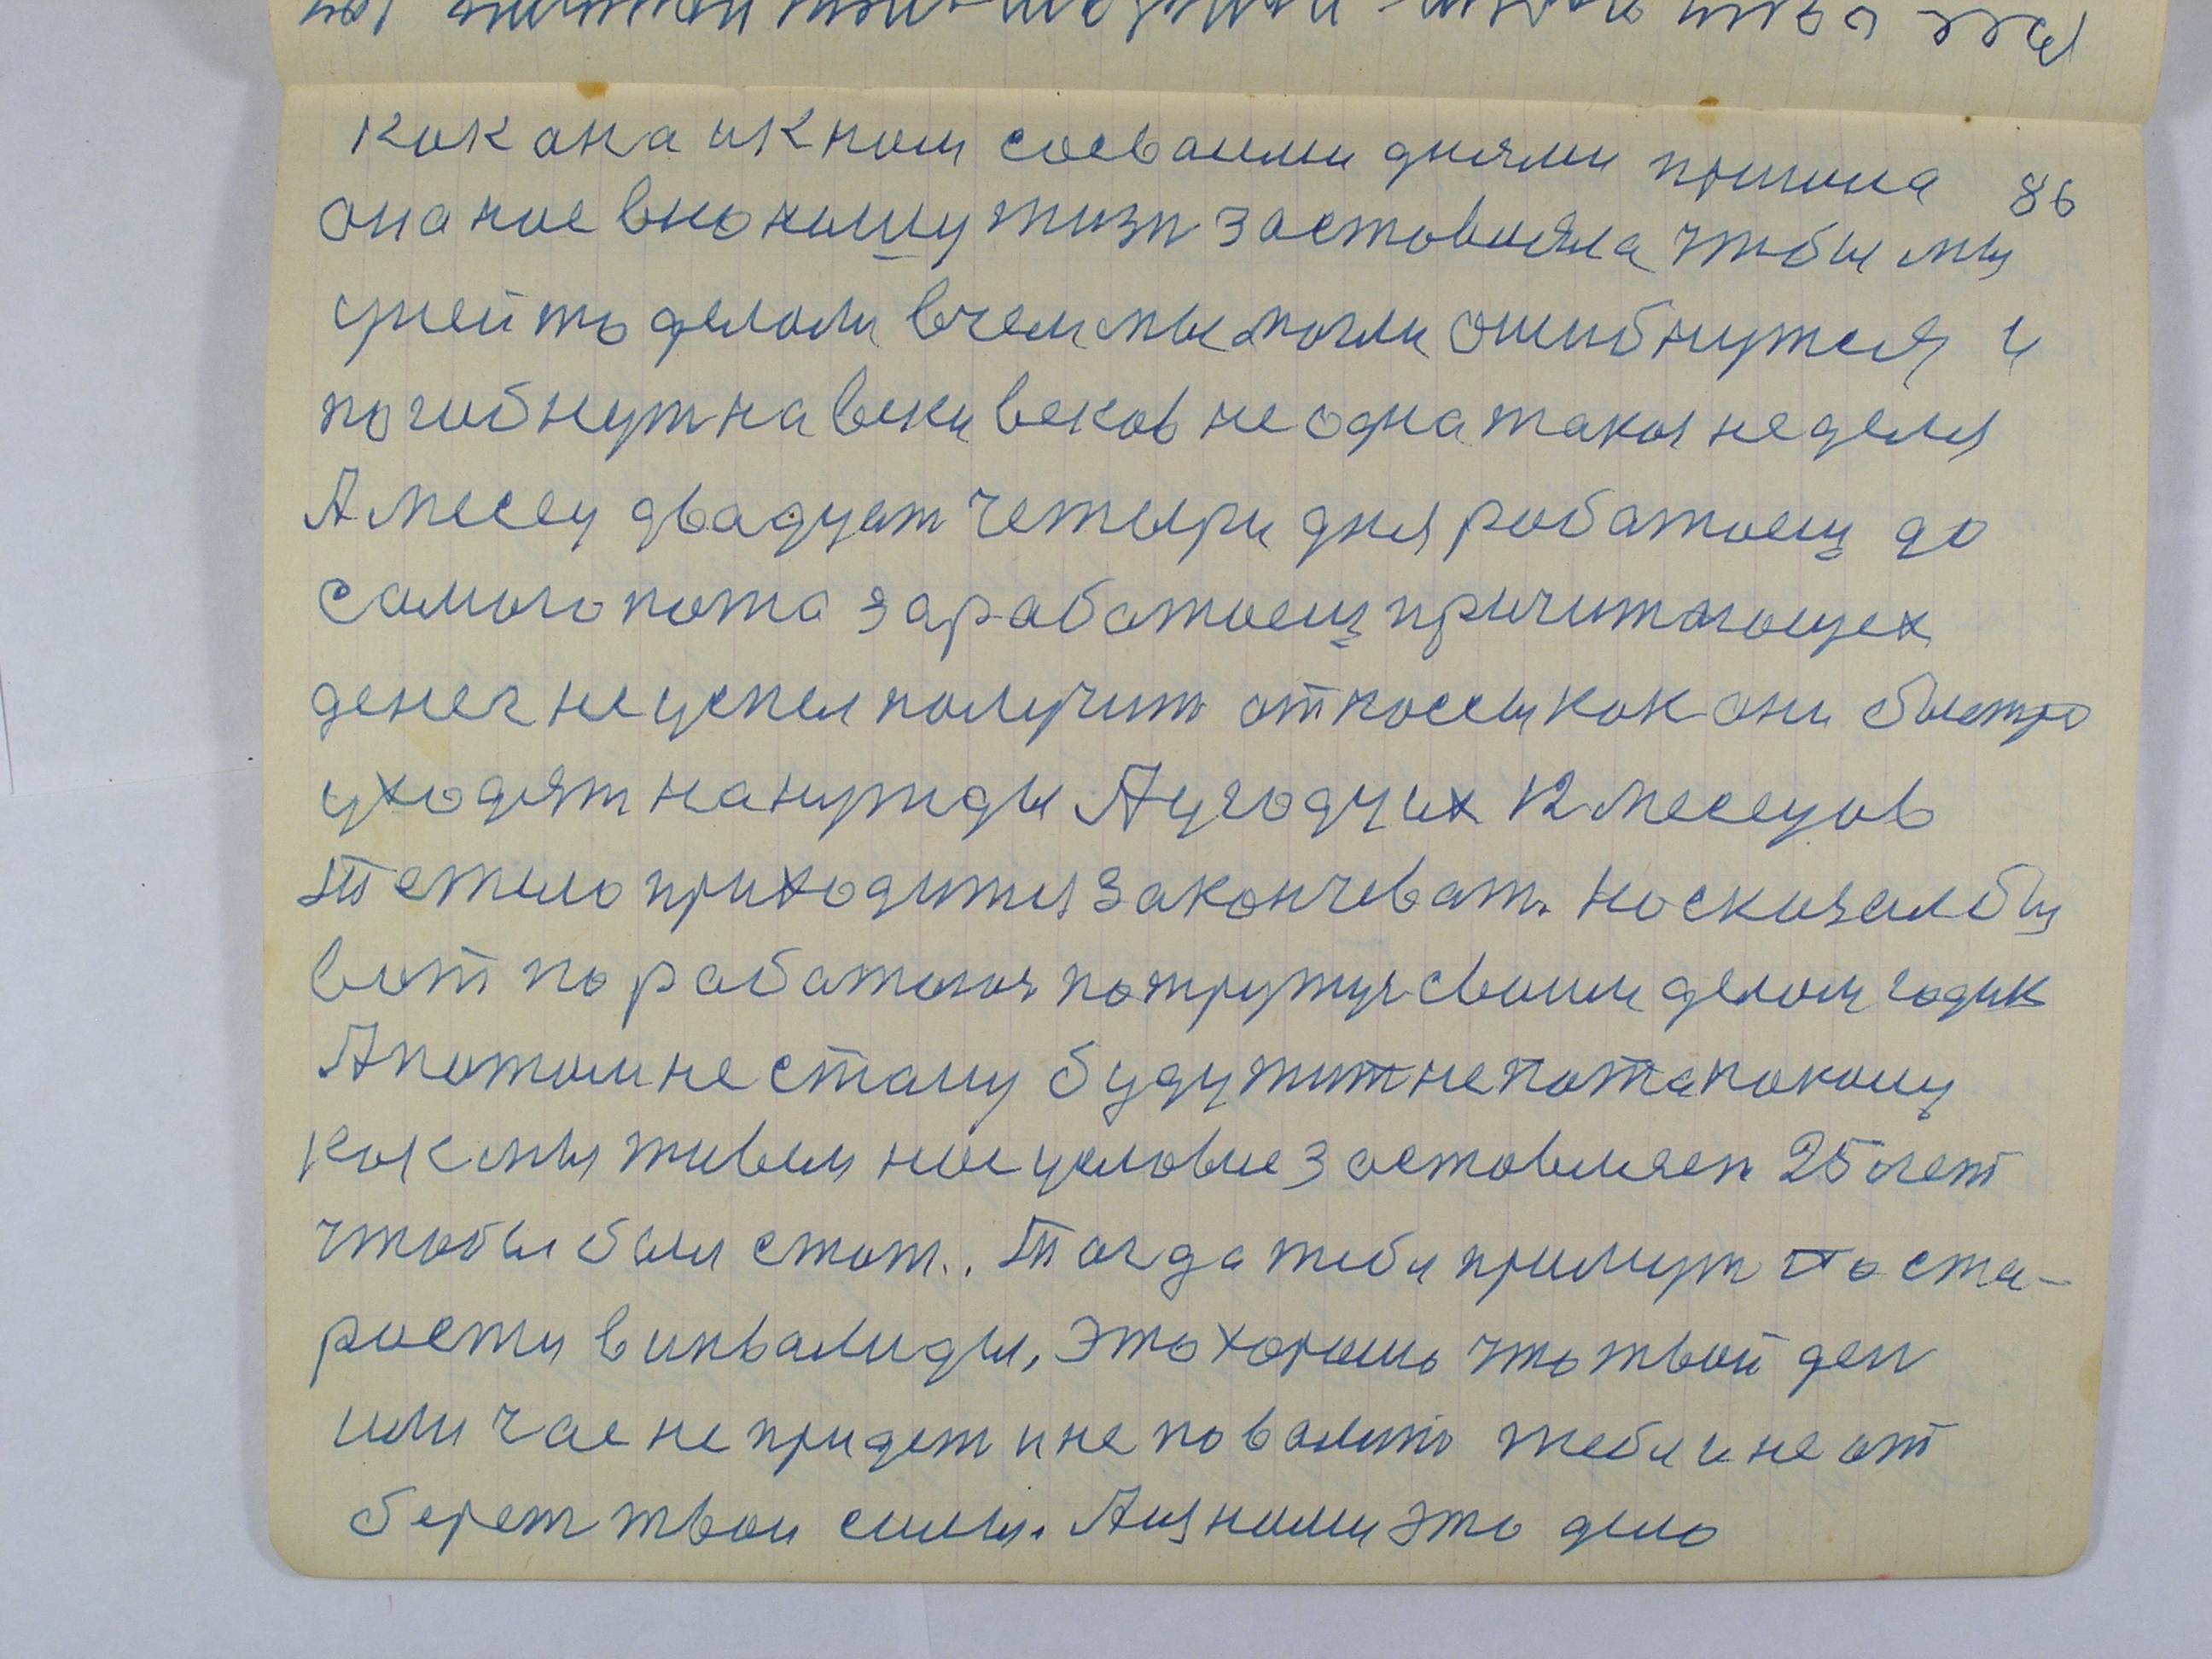 86
как она и к нам со своими днями пришла
она нас в нюю нашу жизн заставляла чтобы мы
у ней то делали в чем мы могли ошибнутся и
погибнут на веки веков не одна такая неделя
А месец двадцет четыри дня работаеш до
самого пота заработаеш причитающех
денег не успел получит от кассы как они быстро
уходят на нужды А у году их 12 месецов
Тежело приходится закончеват. Но сказал бы
вот поработаю потружус своим делом годик
А потом не стану буду жит не по такому
как мы живем нас условие заставляет 25 лет
чтобы был стаж.. Тогда тебя примут по ста-
рости в инвалиды, это хорошо что твой ден
или час не придет и не повалит тебя и не от
берет твои силы. А из нами это дело